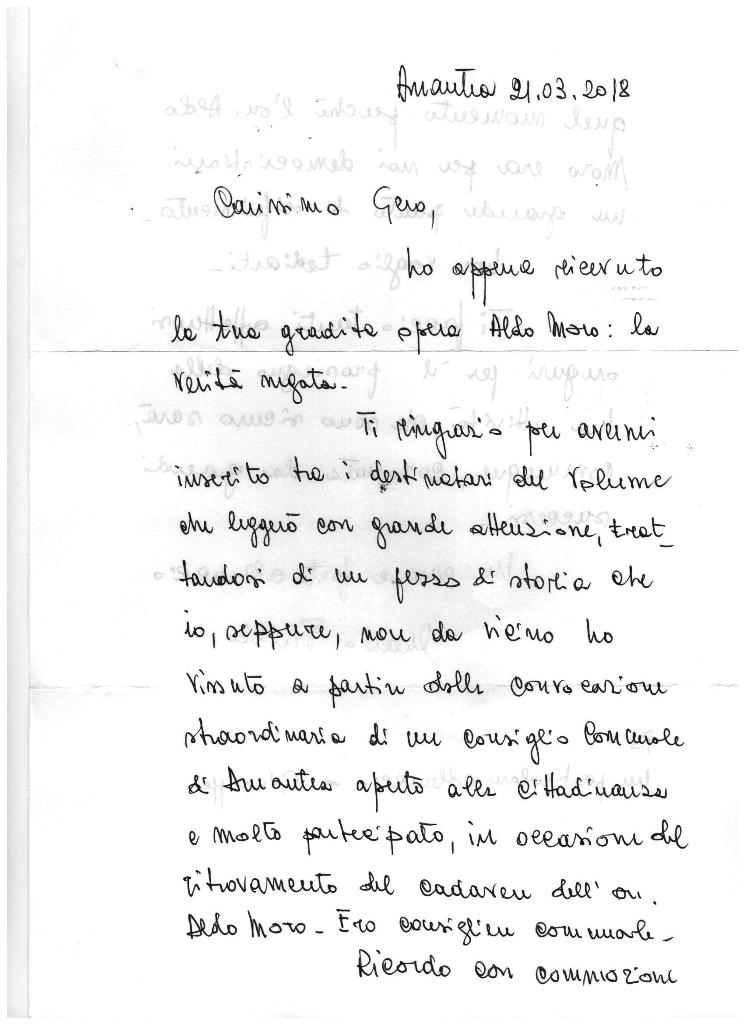 Amantea 21.03.2018
Carissimo Gero,
ho appena ricevuto
la tua gradita opera Aldo Moro: la
verità negata.
Ti ringrazio per avermi
inserito tra i destinatari del volume
che leggerò con grande attenzione, trat_
tandosi di un pezzo di storia che
io, seppure, non da vicino ho
vissuto a partire dalla convocazione
straordinaria di un consiglio Comunale
di Amantea aperto alla cittadinanza
e molto partecipato, in occasione del
ritrovamento del cadavere dell'on.
Aldo Moro - Ero consigliere comunale -
Ricordo con commozione